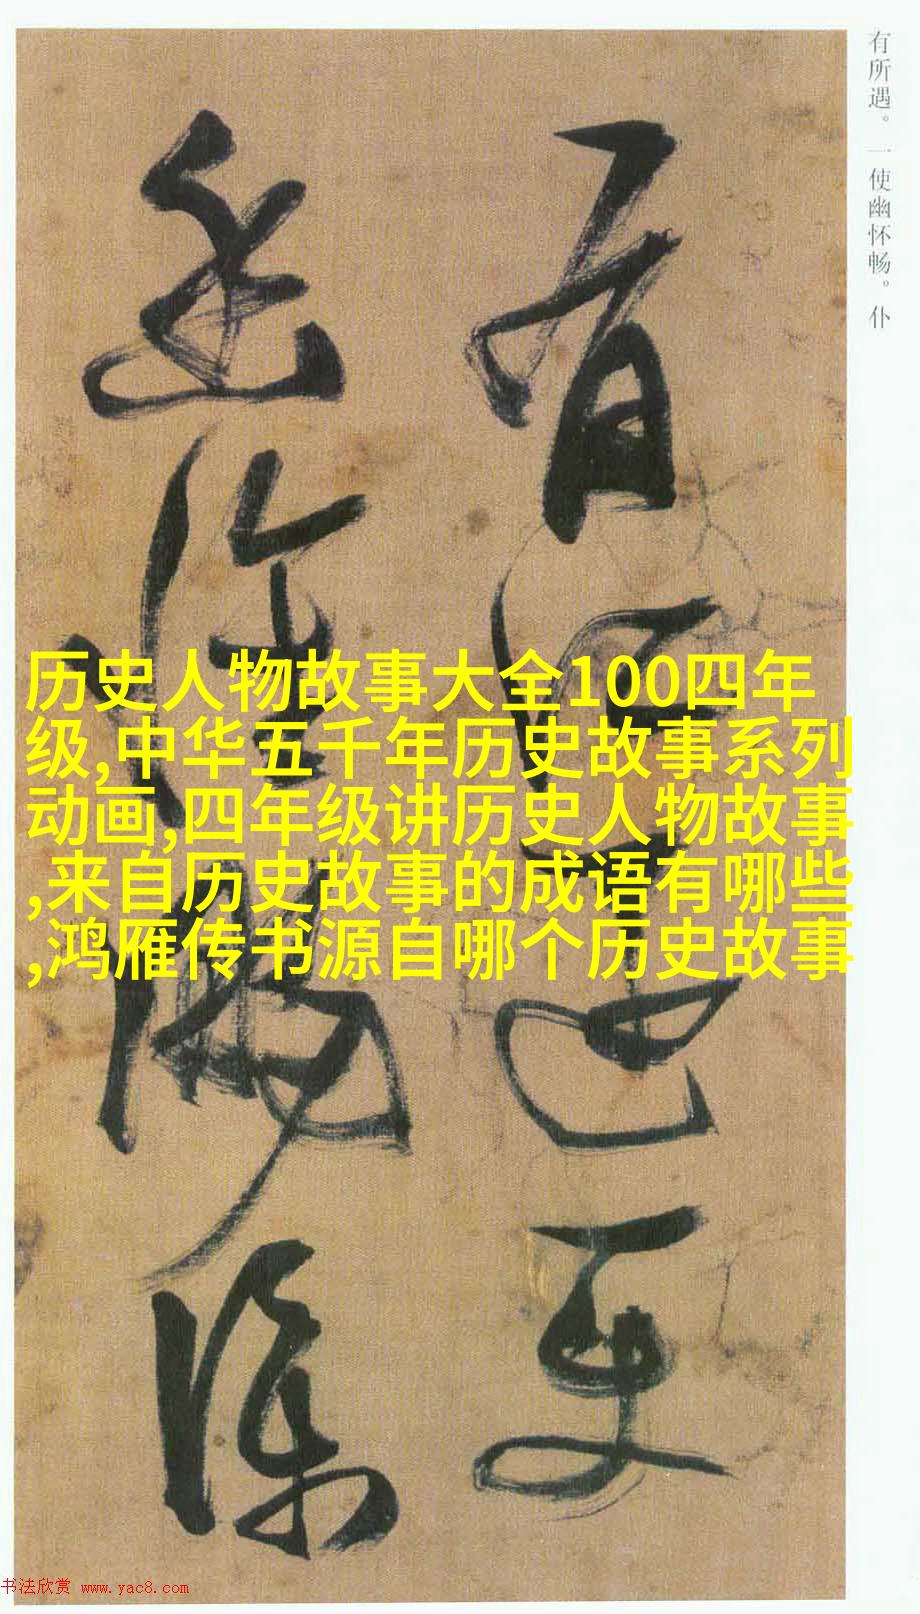 有所遇。一使幽怀畅。仆
有所遇一使
幽怀畅仆
历史人物故事大全100四年
级,中华五千年历史故事系列
动画,四年级讲历史人物故事
,来自历史故事的成语有哪些
,鸿雁传书源自哪个历史故事
书法欣赏 www.yac8.com